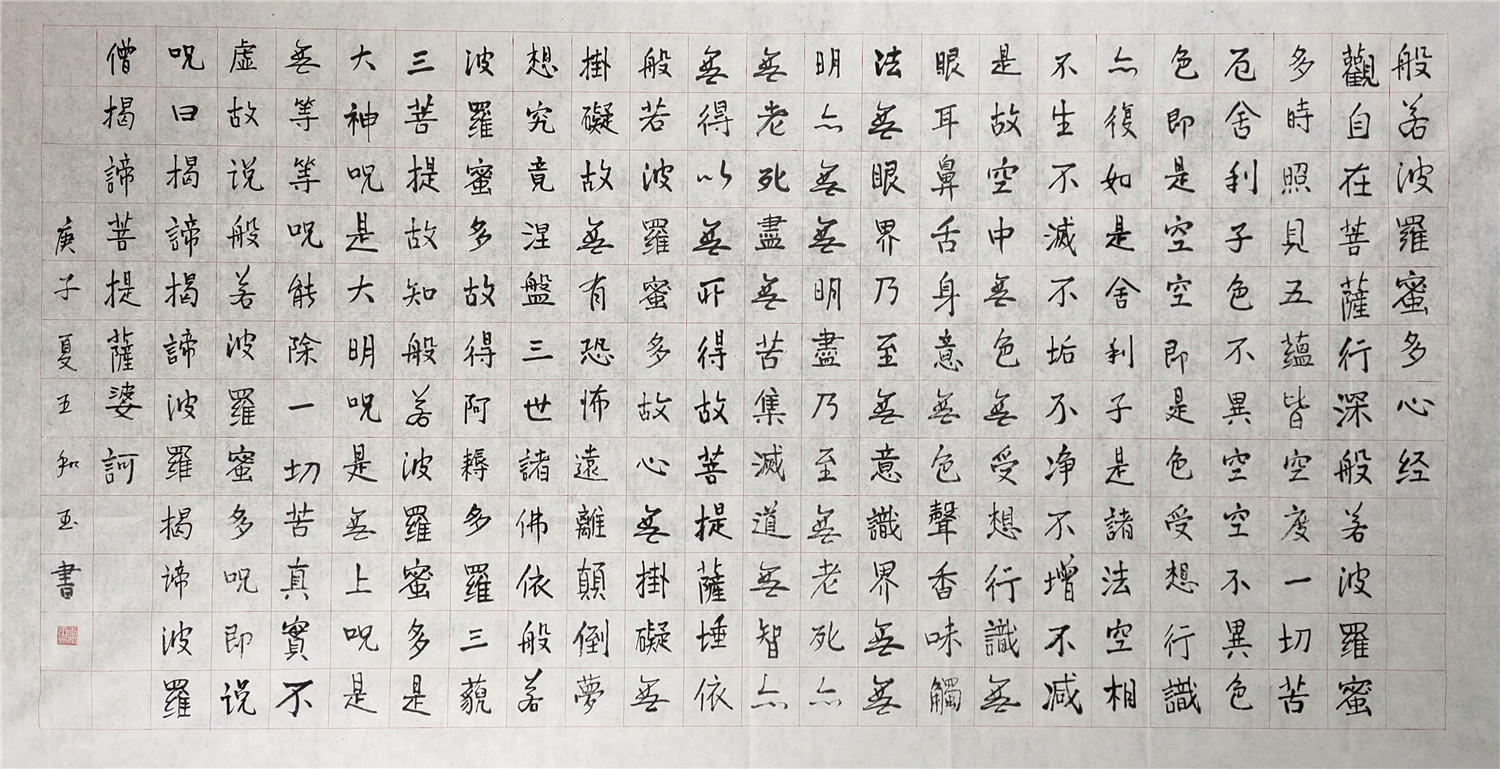 般若波羅蜜多心经
觀自在菩薩行深般若波羅蜜
多時照見五蘊皆空度一切苦
厄舍利子色不異空空不異色
色即是空空即是色受想行識
亦復如是舍利子是諸法空相
不生不滅不垢不净不增不减
是故空中無色無受想行識無
眼耳鼻舌身意無色聲香味觸
法無眼界乃至無意識界無無
明亦無無明盡乃至無老死亦
無老死盡無苦集滅道無智亦
無得以無所得故菩提薩埵依
般若波羅蜜多故心無掛礙無
掛礙故無有恐怖遠離顛倒夢
想究竟涅盤三世諸佛依般若
波羅蜜多故得阿耨多羅三藐
三菩提故知般若波羅蜜多是
大神呪是大明呪是無上呪是
無等等呪能除一切苦真實不
虚故说般若波羅蜜多呪即说
呪曰揭諦揭諦波羅揭諦波羅
僧揭諦菩提薩婆訶
庚子夏王書